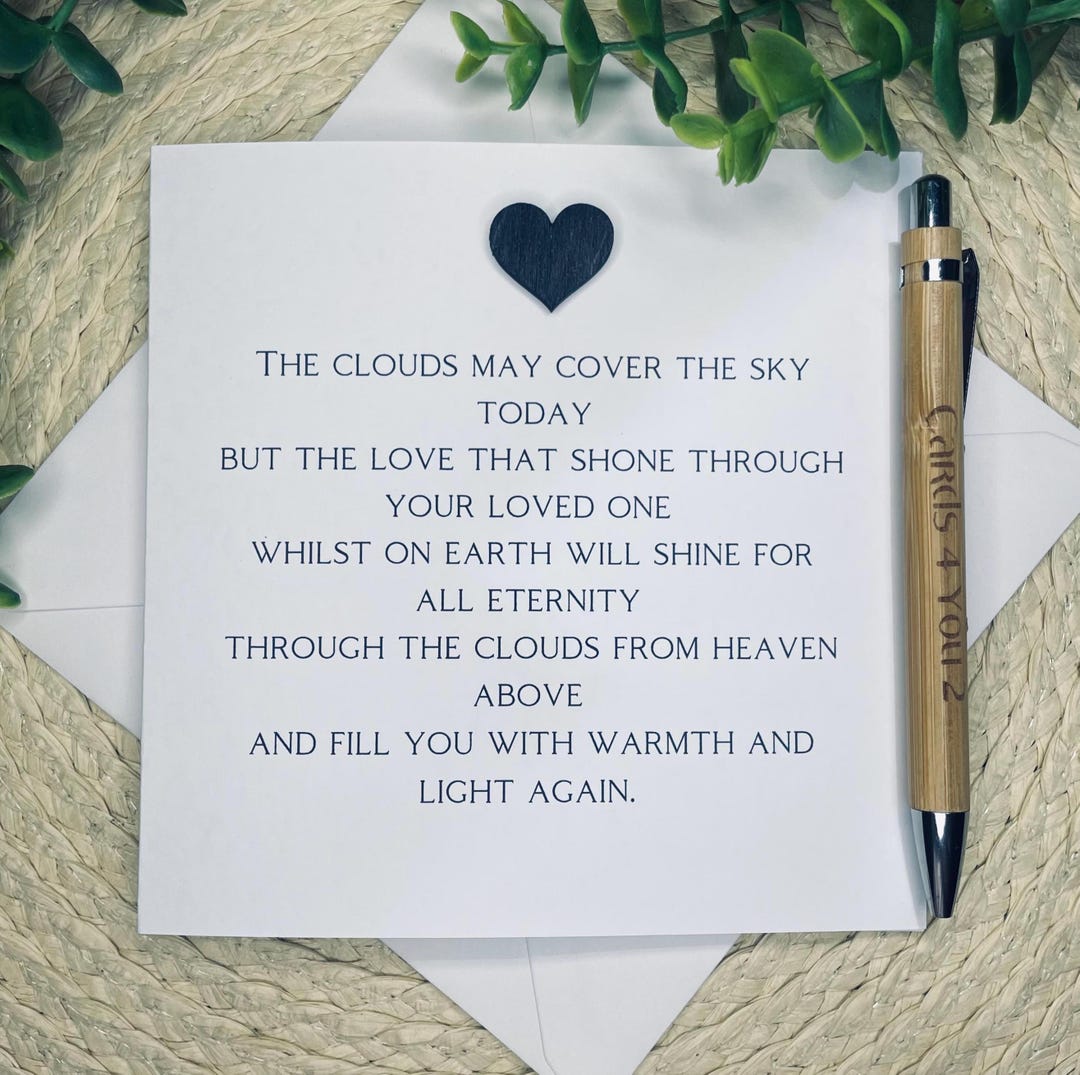 THE CLOUDS MAY COVER THE SKY
TODAY
BUT THE LOVE THAT SHONE THROUGH
YOUR LOVED ONE
WHILST ON EARTH WILL SHINE FOR
ALL ETERNITY
THROUGH THE CLOUDS FROM HEAVEN
ABOVE
AND FILL YOU WITH WARMTH AND
LIGHT AGAIN.
Cards 4 You 2